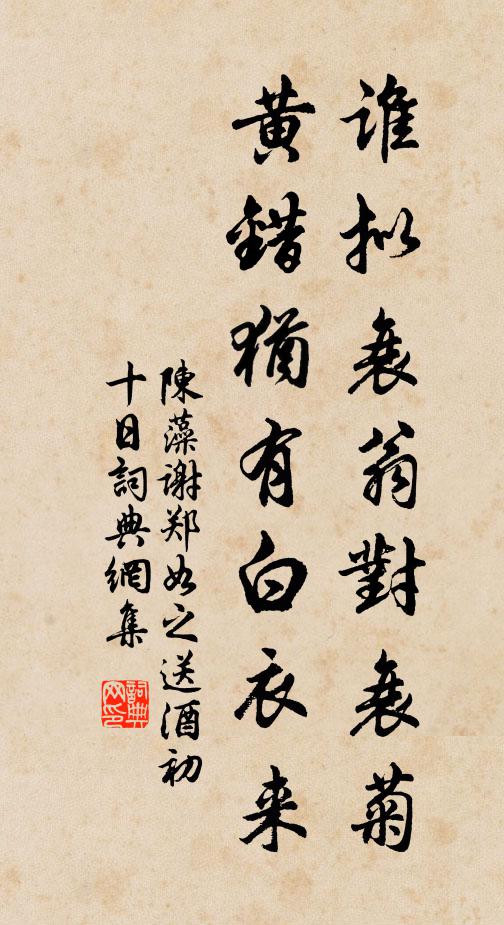 誰拟衰翁對衰菊
黄錯猶有白衣来
陳藻谢郑如之送酒初
十日詞典網集
詞典网印